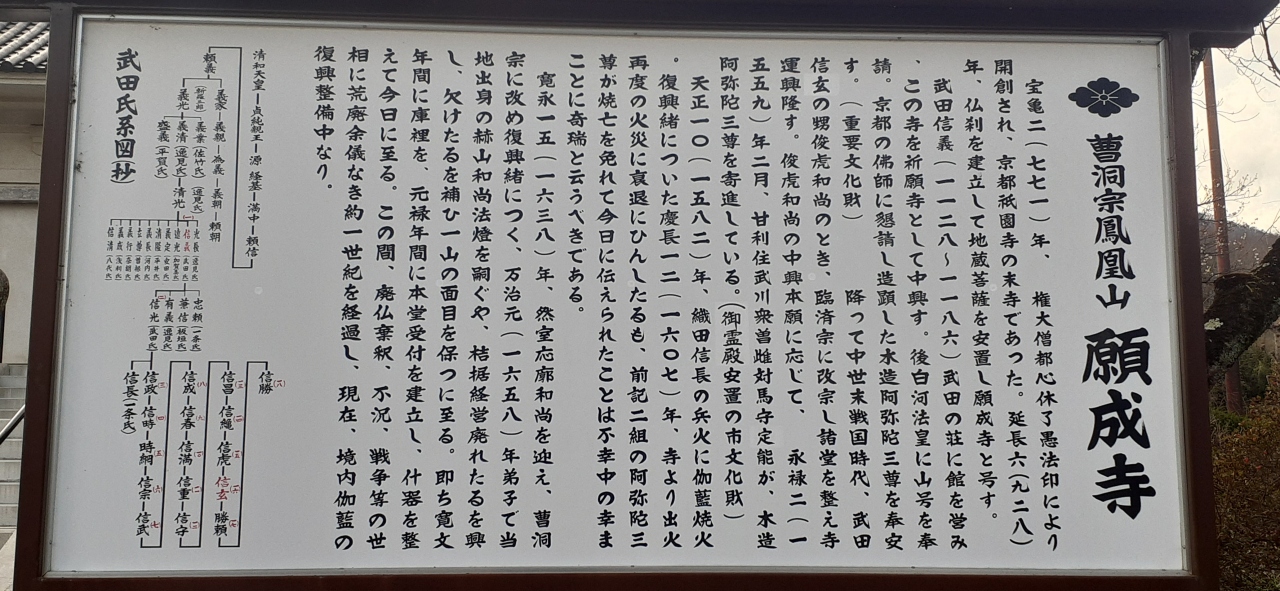 曹洞宗鳳凰山 願成寺
宝亀二(七七一)年、 権大僧都心休了愚法印により
開創され、京都祇園寺の末寺であった。延長六(九二八)
年、仏刹を建立して地蔵菩薩を安置し願成寺と号す。
武田信義(一一二八～一一八六)武田の荘に館を営み
、この寺を祈願寺として中興す。後白河法皇に山号を奉
請。京都の佛師に懇請し造顕した木造阿弥陀三尊を奉安
す。(重要文化財) 降って中世末戦国時代、武田
信玄の甥俊虎和尚のとき、臨済宗に改宗し諸堂を整え寺
運興隆す。俊虎和尚の中興本願に応じて、 永禄二(一
五五九)年二月、甘利住武川衆曽雌対馬守定能が、木造
阿弥陀三尊を寄進している。(御霊殿安置の市文化財)
天正一〇(一五八二)年、織田信長の兵火に伽藍焼火
。復興緒についた慶長一二(一六〇七)年、寺より出火
再度の火災に衰退にひんしたるも、前記二組の阿弥陀三
尊が焼亡を免れて今日に伝えられたことは不幸中の幸ま
ことに奇瑞と云うべきである。
寛永一五(一六三八)年、然室応廓和尚を迎え、曹洞
宗に改め復興緒につく、万治元(一六五八)年弟子で当
地出身の赫山和尚法燈を嗣ぐや、桔据経営廃れたるを興
し、欠けたるを補ひ一山の面目を保つに至る。即ち寛文
年間に庫裡を、元禄年間に本堂受付を建立し、什器を整
えて今日に至る。この間、廃仏棄釈、不況、戦争等の世
相に荒廃余儀なき約一世紀を経過し、現在、境内伽藍の
復興整備中なり。
武田氏系図(抄)
清和天皇―貞純親王―源 経基―満中―頼信
頼義
義家―義親―為義―義朝―頼朝
義光(新羅三郎)
義業(佐竹氏)
義清(逸見氏)―清光(逸見氏)
盛義(平賀氏)
光長(逸見氏)
信義(武田氏)
遠光(加賀美氏)
義定(安田氏)
清隆(平井氏)
長義(河内氏)
義行(奈胡氏)
義成(浅利氏)
信清(八代氏)
忠頼(一条氏)
兼信(板垣氏)
有義(逸見氏)
信光(武田氏)
信政―信時―時綱―信宗―信武
信長(一条氏)
信成―信春―信満―信重―信守
信昌―信縄―信虎―信玄―勝頼
信勝